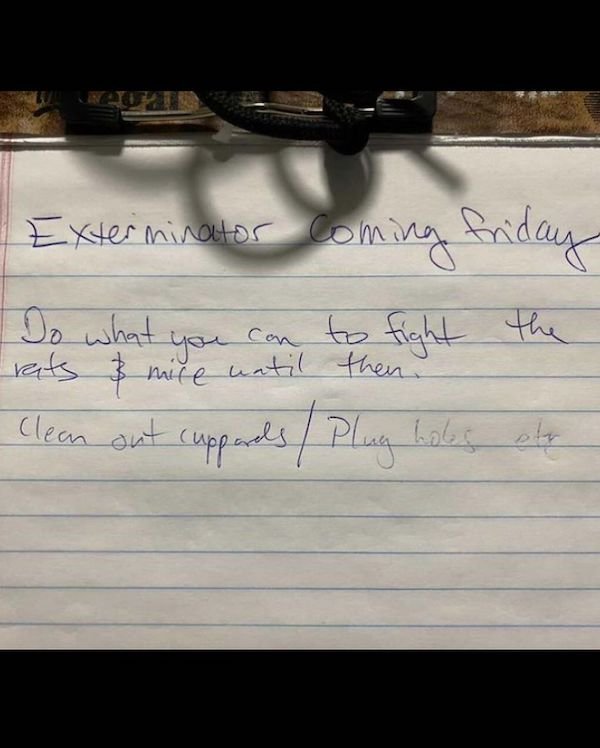 Legal
Exterminator Coming friday
Do what you can to fight the
rats & mice until then.
Clean out cuppards / Plug holes etc